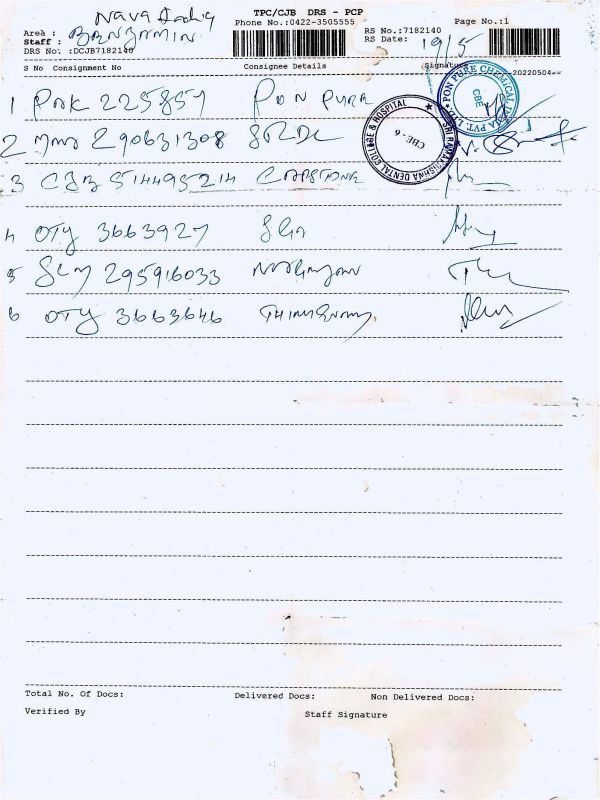 Nava
TPC/CJB DRS - PCP
Page No.:1
Area :
Phone No.:0422-3505555
RS No.:7182140
Staff : BENJAMIN
RS Date: 19/5
DRS No. :DCJB7182140
S No Consignment No Consignee Details Signature
20220504
1 PNK 225857 PON PURE
2 290631308 SRDC
3 CJB 514495214 CAPSTONE
4 OTY 3663927
5 SLM 295916033
6 OTY 3663646
PON PURE CHEMICAL INDIA PVT. LTD.
CBE
SRI RAMAKRISHNA DENTAL COLLEGE & HOSPITAL
CBE - 6
Total No. Of Docs: Delivered Docs: Non Delivered Docs:
Verified By Staff Signature